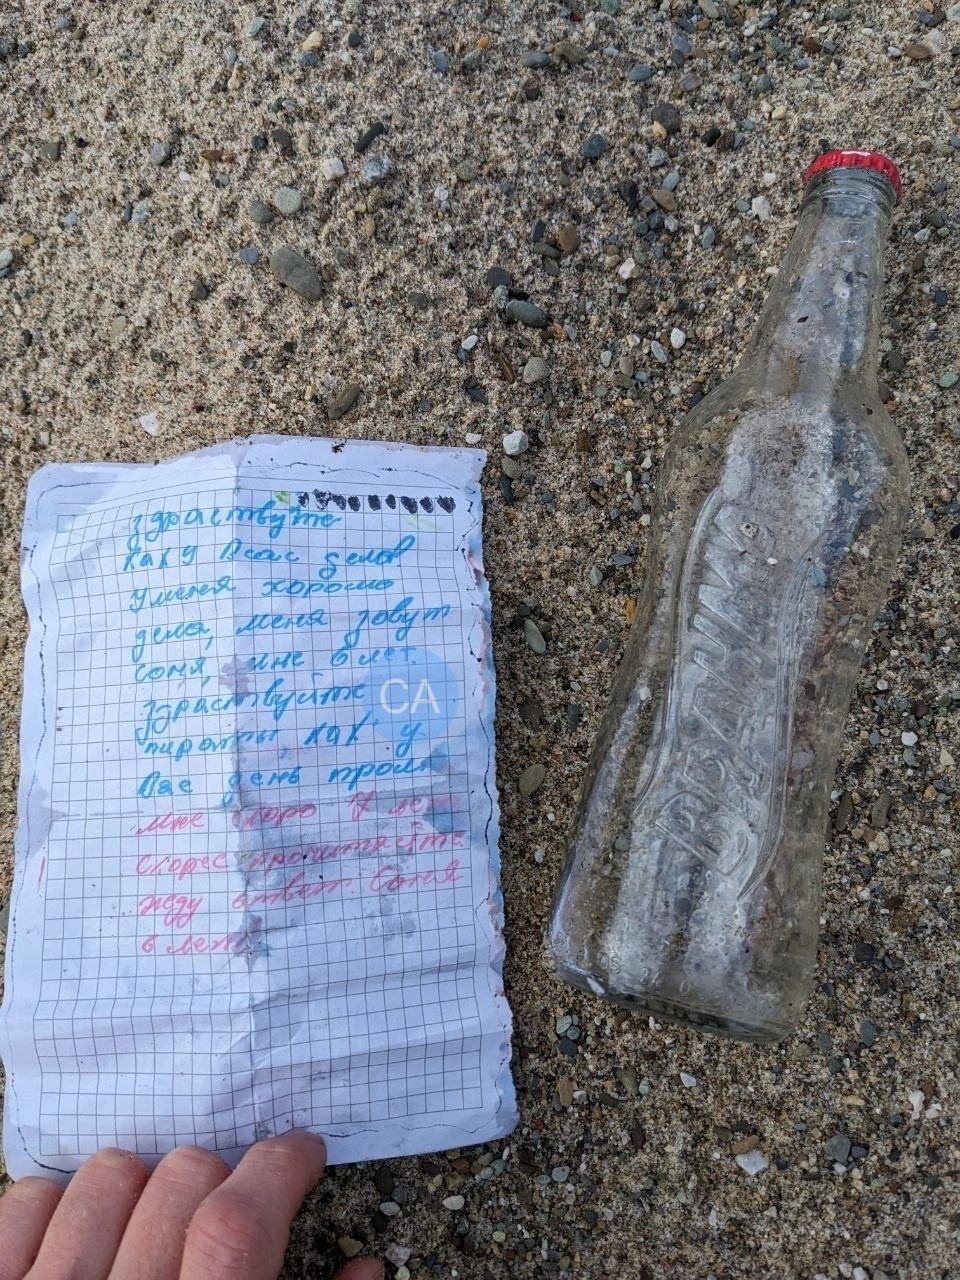 здраствуйте
как у Васс делов
Уменя хорошо
дела, меня зовут
Соня, мне 6 лет.
здраствуйте
пираты как у
Вас день
мне скоро 7 лет
скорее прочитайте
жду ответ. Соня
6 лет
CA